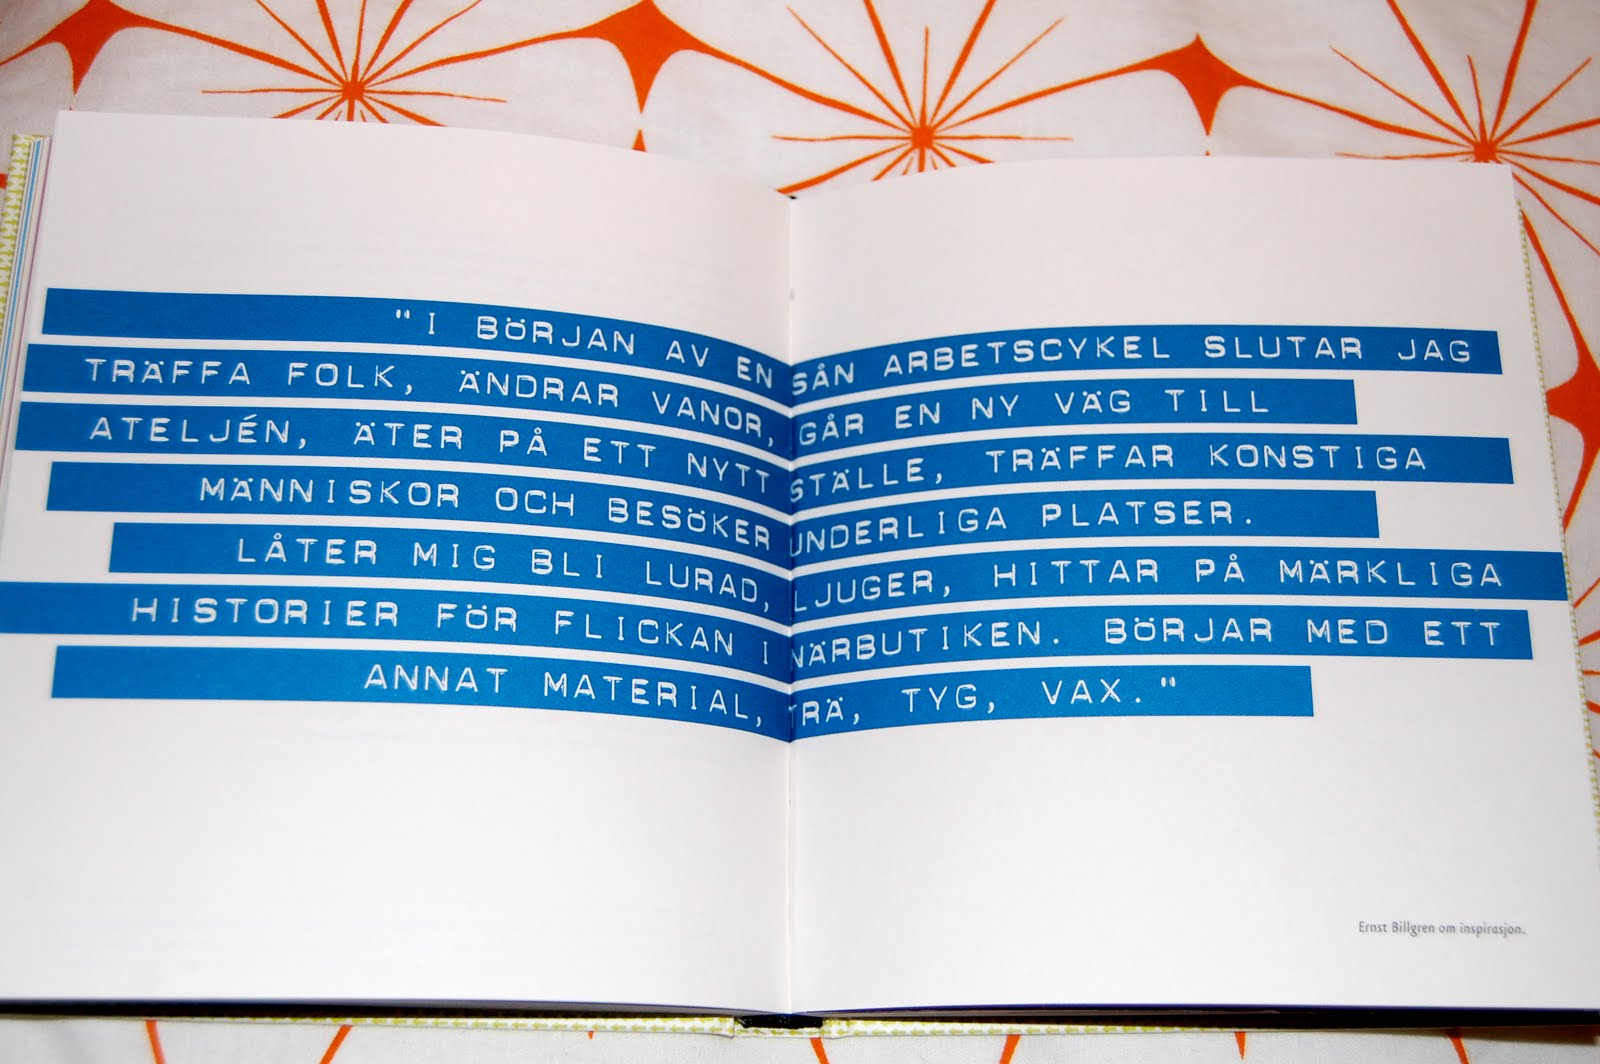 "I BÖRJAN AV EN SÅN ARBETSCYKEL SLUTAR JAG
TRÄFFA FOLK, ÄNDRAR VANOR, GÅR EN NY VÄG TILL
ATELJÉN, ÄTER PÅ ETT NYTT STÄLLE, TRÄFFAR KONSTIGA
MÄNNISKOR OCH BESÖKER UNDERLIGA PLATSER.
LÅTER MIG BLI LURAD, LJUGER, HITTAR PÅ MÄRKLIGA
HISTORIER FÖR FLICKAN I NÄRBUTIKEN. BÖRJAR MED ETT
ANNAT MATERIAL, TRÄ, TYG, VAX."
Ernst Billgren om inspirasjon.